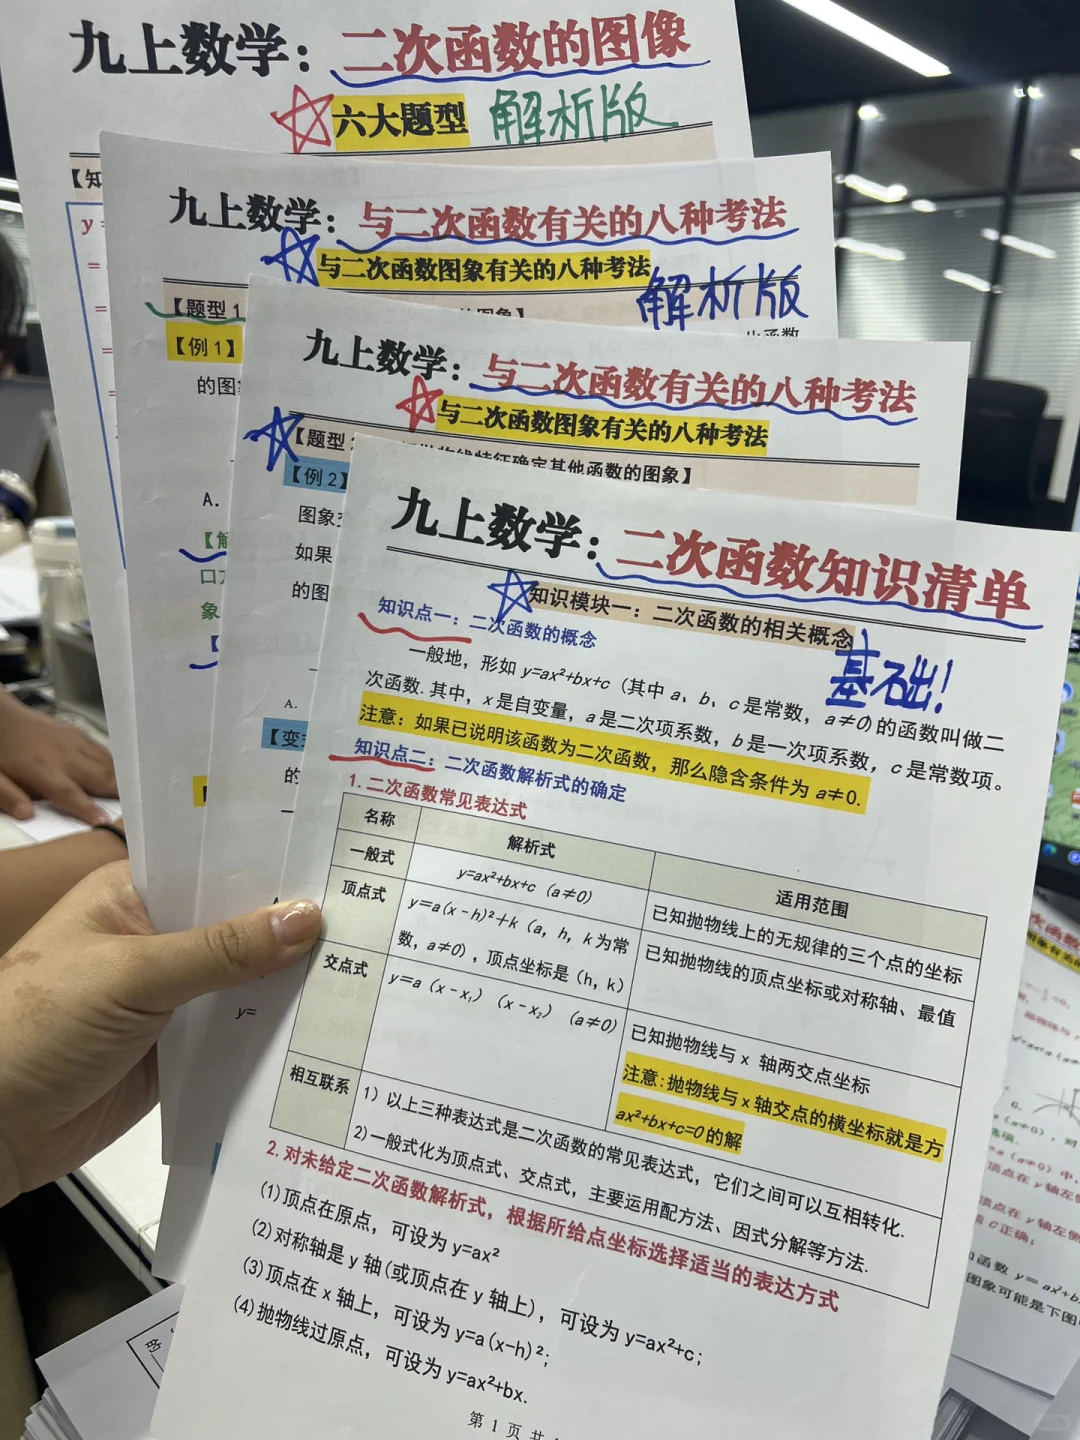 九上数学：二次函数的图像
六大题型 解析版
【知
y
=
=
=
九上数学：与二次函数有关的八种考法
与二次函数图象有关的八种考法
解析版
【题型1
【例1】
的图
A.
象
九上数学：与二次函数有关的八种考法
与二次函数图象有关的八种考法
【题型
特征确定其他函数的图象】
【例2】
图象
如果
的图
A.
【变
的
y=
九上数学：二次函数知识清单
知识模块一：二次函数的相关概念
基础！
知识点一：二次函数的概念
一般地，形如 y=ax²+bx+c（其中 a、b、c 是常数，a≠0）的函数叫做二
次函数.其中，x 是自变量，a 是二次项系数，b 是一次项系数，c 是常数项。
注意：如果已说明该函数为二次函数，那么隐含条件为 a≠0.
知识点二：二次函数解析式的确定
1.二次函数常见表达式
名称 解析式 适用范围
一般式 y=ax²+bx+c（a≠0） 已知抛物线上的无规律的三个点的坐标
顶点式 y=a(x-h)²+k（a，h，k 为常
数，a≠0），顶点坐标是（h，k） 已知抛物线的顶点坐标或对称轴、最值
交点式 y=a（x-x₁）（x-x₂）（a≠0） 已知抛物线与 x 轴两交点坐标
注意:抛物线与 x 轴交点的横坐标就是方
ax²+bx+c=0 的解
相互联系 1）以上三种表达式是二次函数的常见表达式，它们之间可以互相转化.
2)一般式化为顶点式、交点式，主要运用配方法、因式分解等方法.
2.对未给定二次函数解析式，根据所给点坐标选择适当的表达方式
(1)顶点在原点，可设为 y=ax²
(2)对称轴是 y 轴(或顶点在 y 轴上)，可设为 y=ax²+c；
(3)顶点在 x 轴上，可设为 y=a(x-h)²；
(4)抛物线过原点，可设为 y=ax²+bx.
第 1 页 共